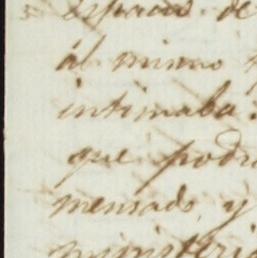 espacios de
al mismo
intimaba
que podr
mensado, y
ministeri